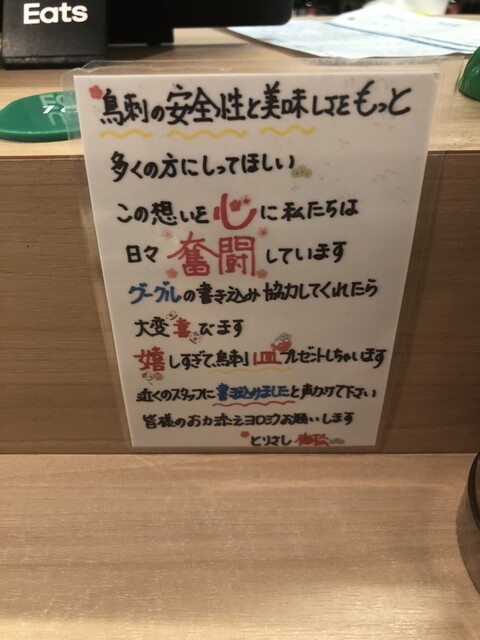 Eats
鳥刺の安全性と美味しさをもっと
多くの方にしってほしい
この想いを心に私たちは
日々奮闘しています
グーグルの書き込み協力してくれたら
大変喜びます
嬉しすぎて鳥刺1皿プレゼントしちゃいます
近くのスタッフに書き込みましたと声かけて下さい
皆様のお力添えヨロシクお願いします
とりさし